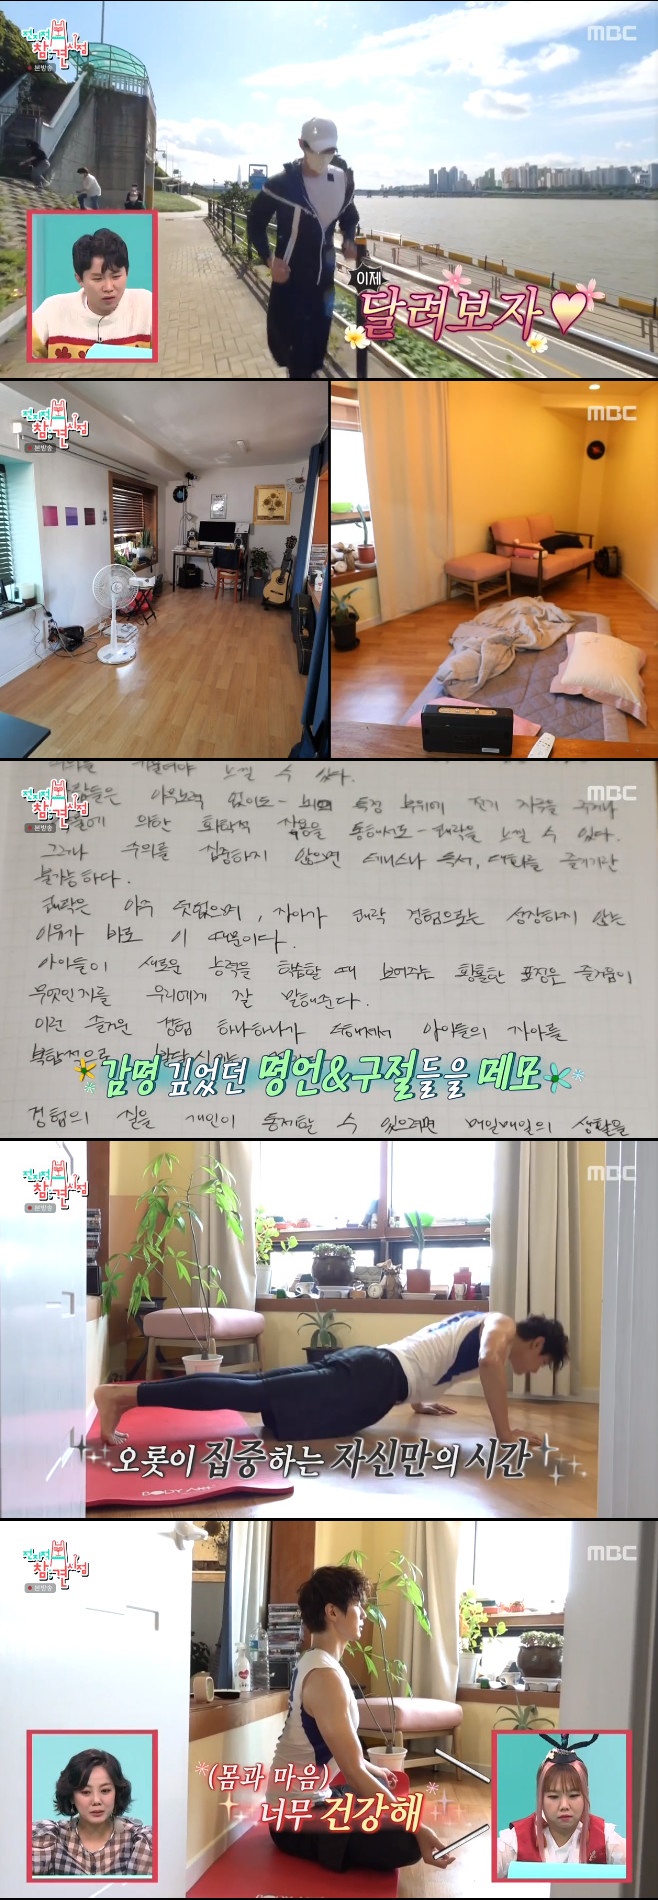 전지적
참견
시점
본방송
MBC
이제
달려보자♥
전지적
참견
시점
본방송
MBC
전지적
참견
시점
본방송
MBC
느낄 수 있다.
없이도- 뇌의 특정 부위에 전기 자극을 주거나
의한 화학적 작용을 통해서도- 쾌락을 느낄 수 있다.
그러나 주의를 집중하지 않으면 테니스나 독서, 대화를 즐기기란
불가능하다.
쾌락은 아주 덧없으며, 자아가 쾌락 경험으로는 성장하지 않는
이유가 바로 이 때문이다.
아이들이 새로운 능력을 학습할 때 보여주는 황홀한 표정은 즐거움이
무엇인지를 우리에게 잘 말해준다.
이런 즐거운 경험 하나하나가 자아를
복합적으로
감명 깊었던 명언&구절들을 메모
경험의 질을 개인이 통제할 수 있으려면 매일매일의 생활을
전지적
참견
시점
본방송
MBC
BODY ART
오롯이 집중하는 자신만의 시간
전지적
참견
시점
본방송
MBC
(몸과 마음)
너무 건강해